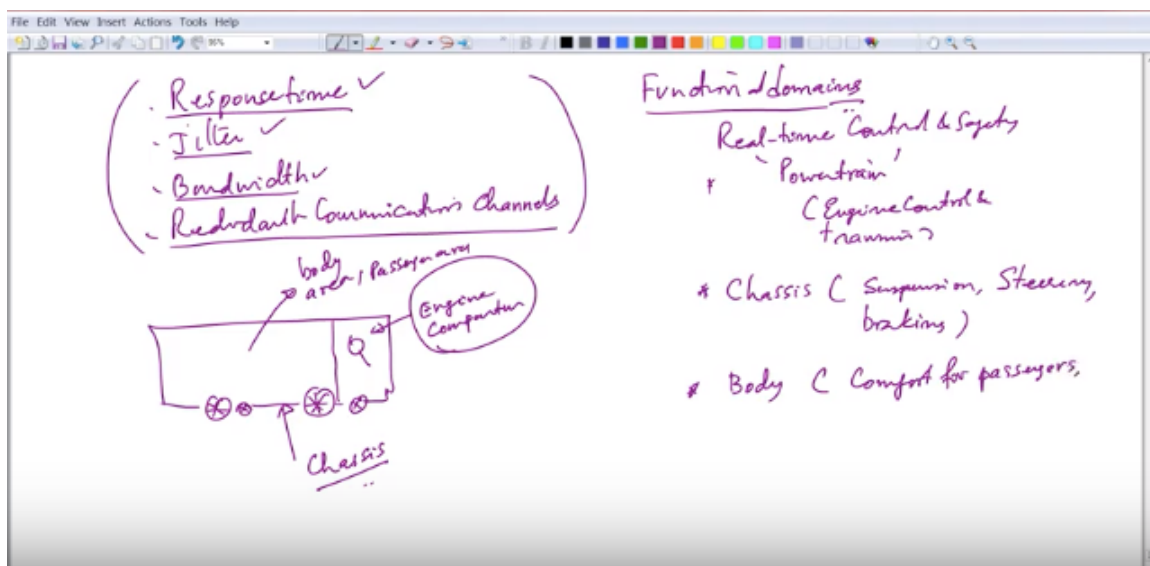 File Edit View Insert Actions Tools Help
95%
. Response time ✓
. Jitter ✓
. Bandwidth ✓
. Redundant Communications Channels
body
area, Passenger area
Engine
Compartmen
Chassis
Functional domains
Real-time Control & Safety
* 'Powertrain'
( Engine Control &
* Chassis ( Suspension, Steering,
braking )
* Body ( Comfort for passengers,